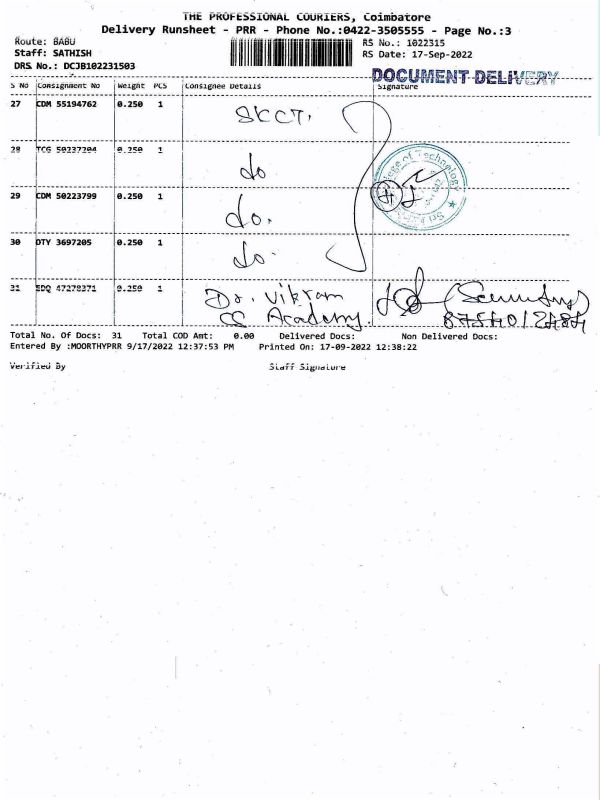 THE PROFESSIONAL COURIERS, Coimbatore
Delivery Runsheet - PRR - Phone No.:0422-3505555 - Page No.:3
Route: BABU
RS No.: 1022315
Staff: SATHISH
RS Date: 17-Sep-2022
DRS No.: DCJB102231503
DOCUMENT DELIVERY
S No Consignment No Weight PCS Consignee Details Signature
27 CDM 55194762 0.250 1 SKCT.
28 TCG 50237204 0.250 1 do
29 CDM 50223799 0.250 1 do.
30 DTY 3697205 0.250 1 do.
31 EDQ 47278371 0.250 1 Dr. Vikram
CS Academy.
College of Technology
Total No. Of Docs: 31 Total COD Amt: 0.00 Delivered Docs: Non Delivered Docs:
Entered By :MOORTHYPRR 9/17/2022 12:37:53 PM Printed On: 17-09-2022 12:38:22
Verified By Staff Signature